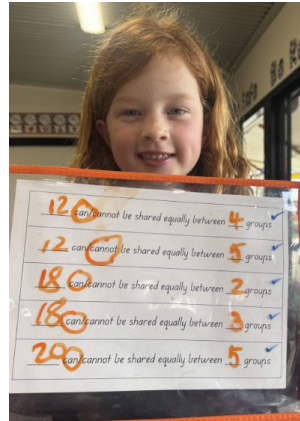 12 can/cannot be shared equally between 4 groups
12 can/cannot be shared equally between 5 groups
18 can/cannot be shared equally between 2 groups
18 can/cannot be shared equally between 3 groups
20 can/cannot be shared equally between 5 groups